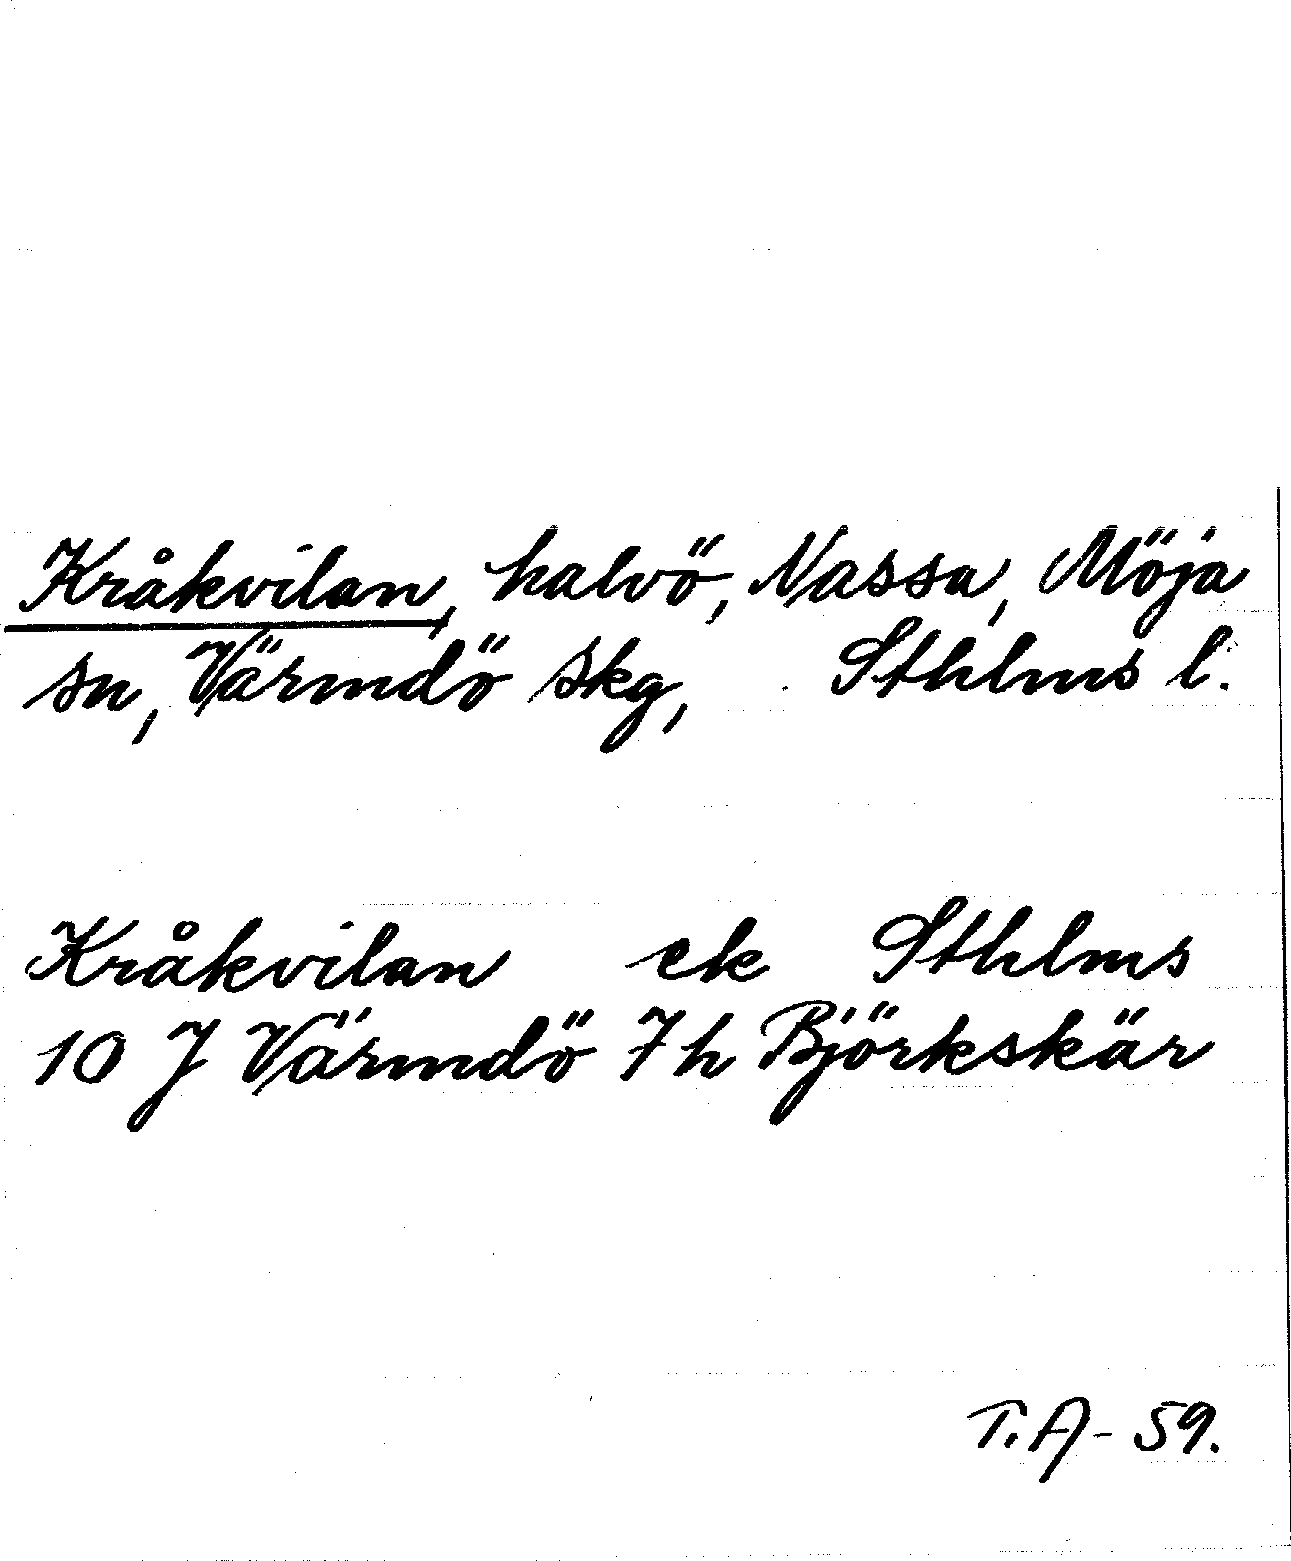 Kråkvilan, halvö, Nassa, Möja
sn, Värmdö skg, Sthlms l.
Kråkvilan ek Sthlms
10 J Värmdö 7h Björkskär
T.A-59.